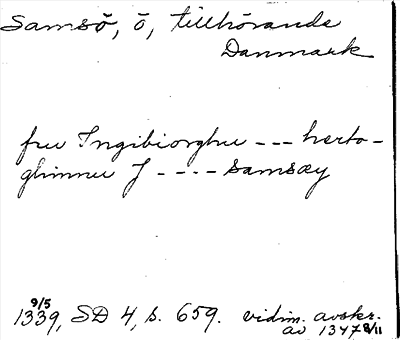 Samsö, ö, tillhörande
Danmark
fru Ingibiorghu --- herto-
ghinnu J ---- Samsøy
9/5
1339, SD 4, s. 659. vidim. avskr.
av 1347 8/11